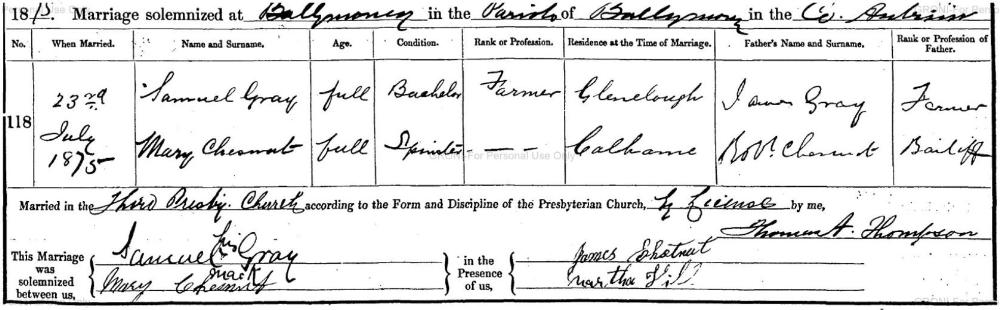 1875. Marriage solemnized at Ballymoney in the Parish of Ballymoney in the Co. Antrim
No. When Married. Name and Surname. Age. Condition. Rank or Profession. Residence at the Time of Marriage. Father's Name and Surname. Rank or Profession of Father.
118 23rd July 1875
Samuel Gray full Bachelor Farmer Glenlough James Gray Farmer
Mary Chesnut full Spinster — — Calhame Robt. Chesnut Bailiff
Married in the Third Presby. Church according to the Form and Discipline of the Presbyterian Church, by License by me,
Thomas A. Thompson
This Marriage was solemnized between us,
Samuel his Gray
mark
Mary Chesnut
in the Presence of us,
James Chestnut
Martha
GRONI-For Personal Use Only